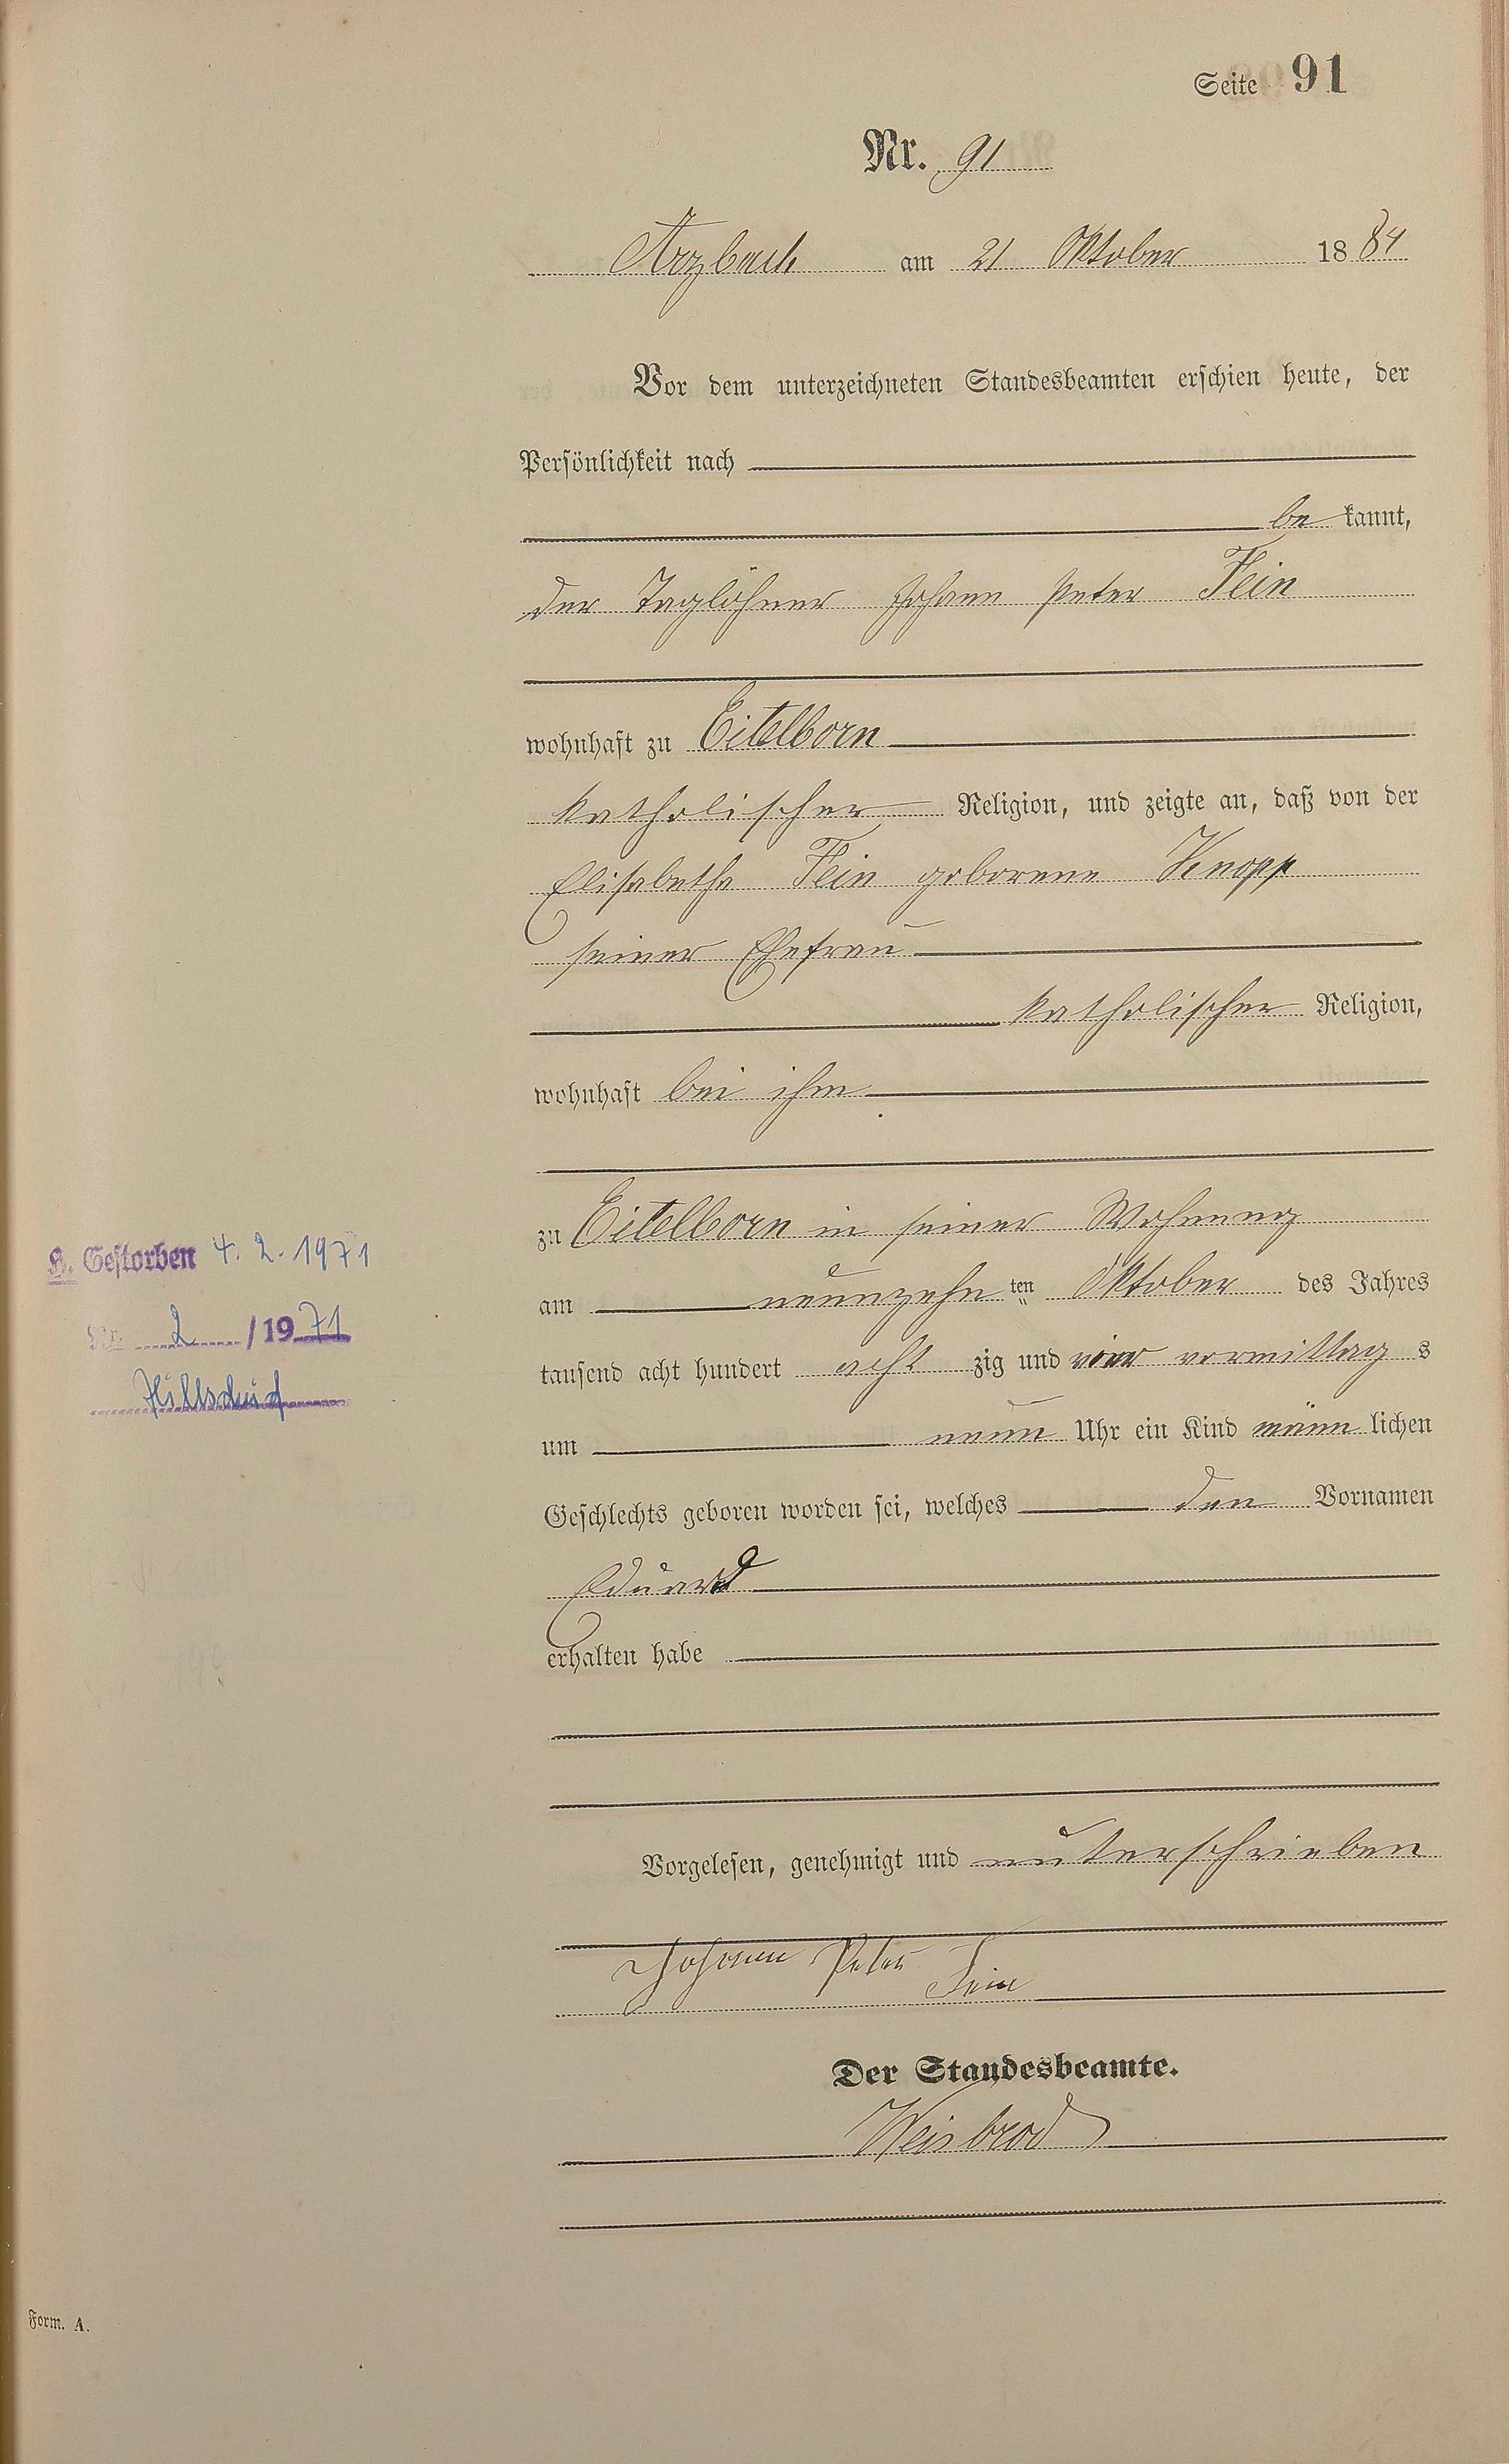 Seite 91
Nr. 91
Arzbach am 21 Oktober 1884
Vor dem unterzeichneten Standesbeamten erschien heute, der
Persönlichkeit nach
be kannt,
der Taglöhner Johann Peter Fein
wohnhaft zu Eitelborn
katholischer Religion, und zeigte an, daß von der
Elisabetha Fein geborene Knopp
seiner Ehefrau
katholischer Religion,
wohnhaft bei ihm
zu Eitelborn in seiner Wohnung
am neunzehn ten Oktober des Jahres
tausend acht hundert acht zig und vier vormittag s
um neun Uhr ein Kind männ lichen
Geschlechts geboren worden sei, welches den Vornamen
Eduard
erhalten habe
Vorgelesen, genehmigt und unterschrieben
Johann Peter Fein
Der Standesbeamte.
Weisbrod
H. Gestorben 4. 2. 1971
Nr. 2 /1971
Hillscheid
Form. A.